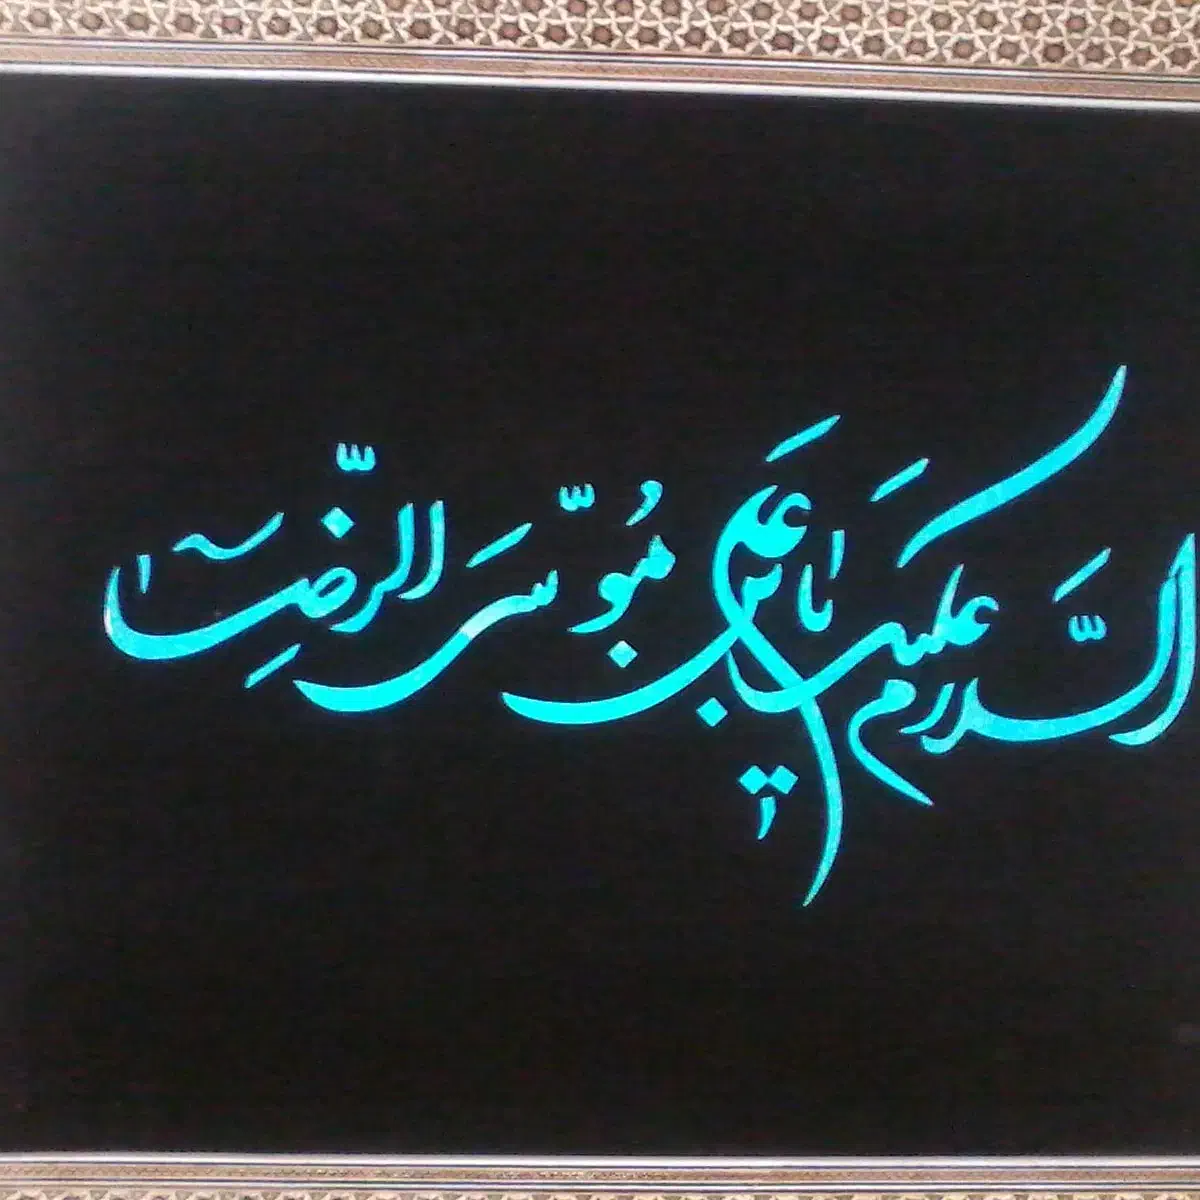 السَّلام عَلیکَ یا عَلی بن مُوسَّی الرّضا